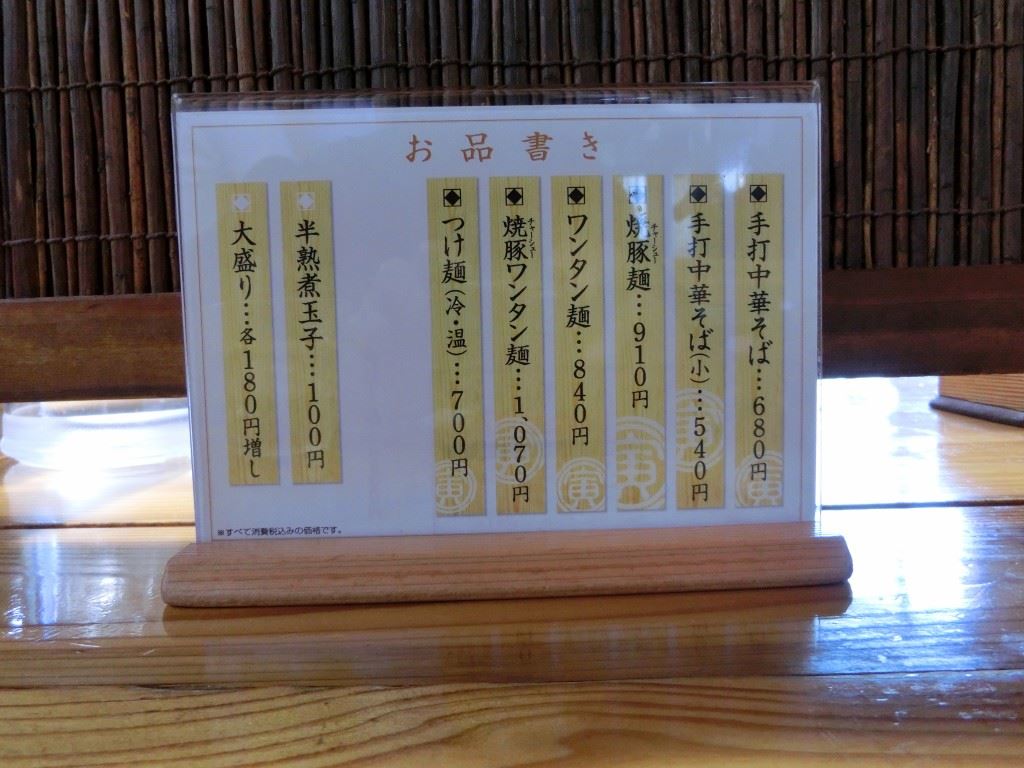 お品書き
手打中華そば…680円
手打中華そば(小)…540円
焼豚麺…910円
チャーシュー
ワンタン麺…840円
焼豚ワンタン麺…1,070円
チャーシュー
つけ麺(冷・温)…700円
半熟煮玉子…100円
大盛り…各180円増し
※すべて消費税込みの価格です。
寅
寅
寅
寅
寅
寅